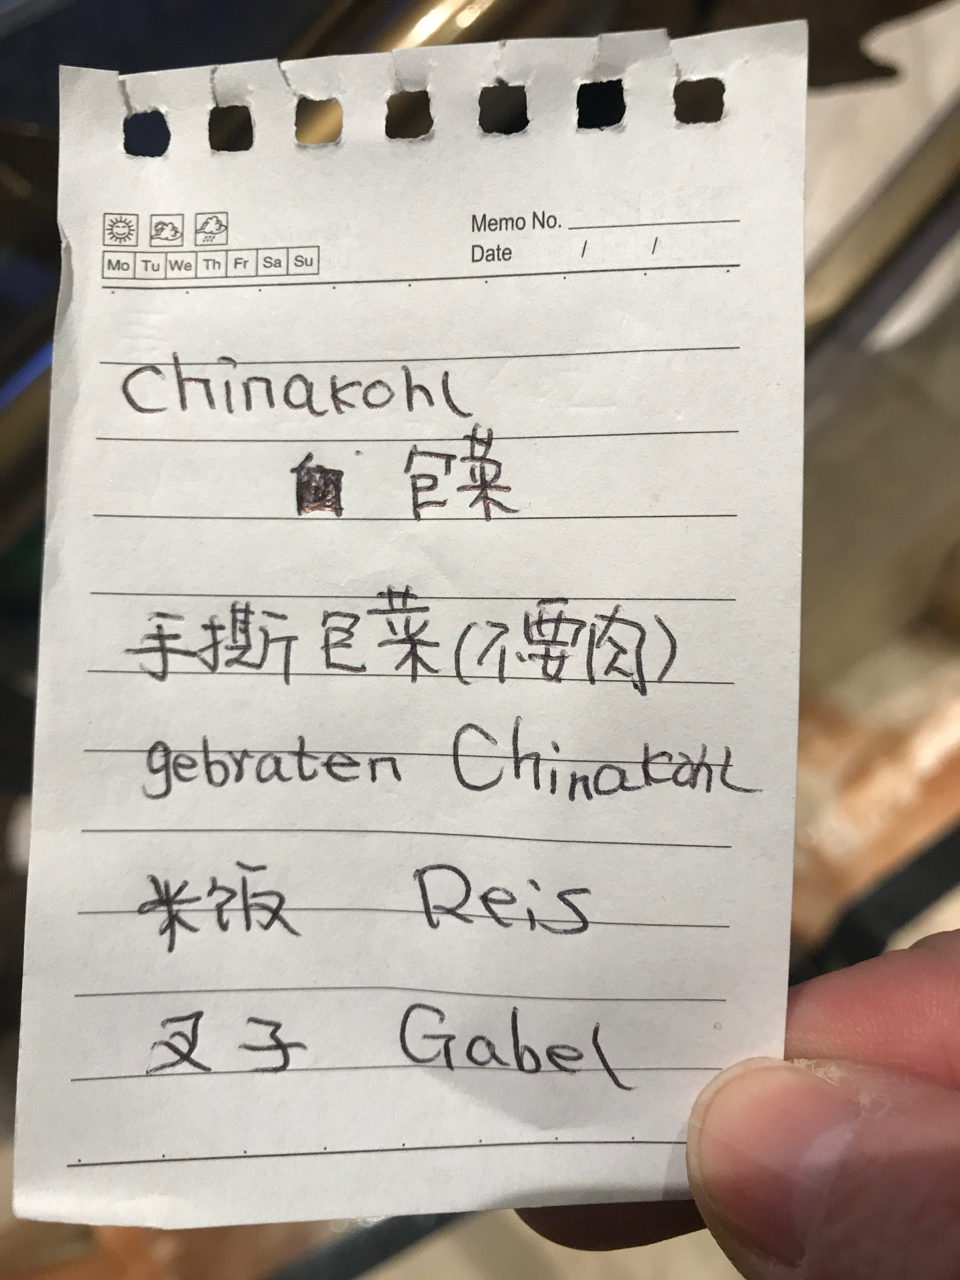 Memo No.
Mo Tu We Th Fr Sa Su
Date / /
Chinakohl
包菜
手撕包菜(不要肉)
gebraten Chinakohl
米饭 Reis
叉子 Gabel